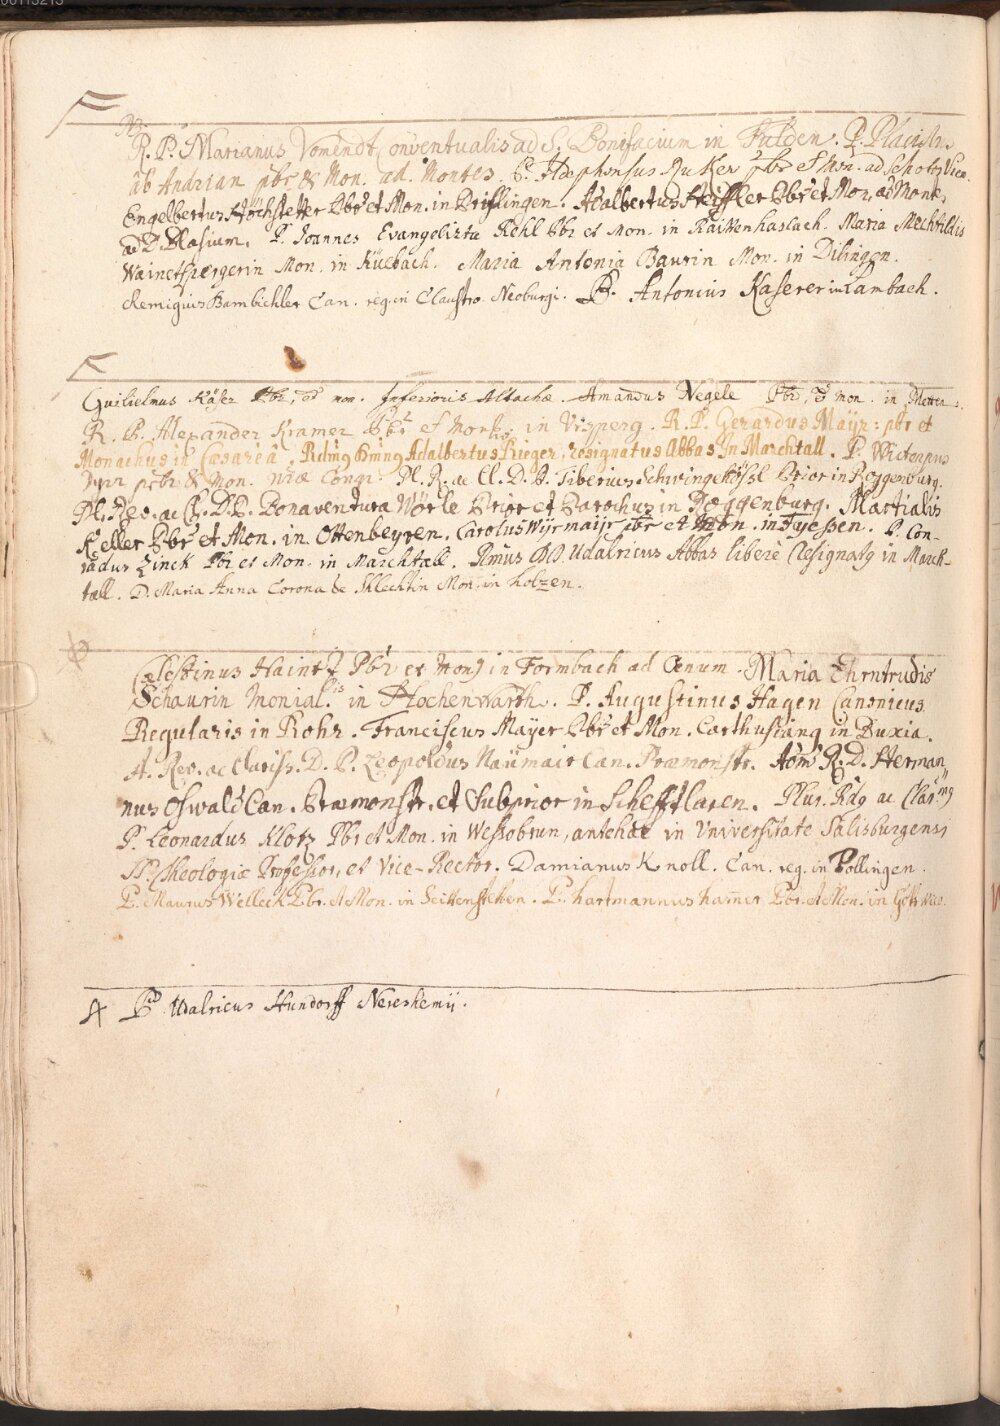 R. P. Marianus Vomendt Conventualis ad S. Bonifacium in Fulden. P. Placidus
ab Andrian pbr & Mon. ad Montes. P. Ildephonsus Huker pbr et Mon. ad Schotos Vien.
Engelbertus Höchstetter Pbr et Mon. in Prislingen. Adalbertus Steiffler Pbr et Mon. ad Mont.
ad D. Blasium. P. Joannes Evangelista Kehl Pbr et Mon. in Raittenhaslach. Maria Mechtildis
Wainetspergerin Mon. in Küebach. Maria Antonia Baurin Mon. in Dilingen.
Remigius Bambichler Can. reg. in Claustro Neoburgi. P. Antonius Kaserer in Lambach.
Guilielmus Käser Pbr, et mon. Inferioris Altachæ. Amandus Negele Pbr, et mon. in Metten.
R. P. Alexander Kramer Pbr et Mon. in Ursperg. R. P. Gerardus Mayr: pbr et
Monachus in Cæsareâ. Rdmg Dmng Adalbertus Rieger, resignatus Abbas In Marchtall. P. Wicterpus
pbr & Mon. nræ Congr. Pl. R. ac Cl. D. P. Tiberius Schwingehössl Prior in Roggenburg.
Pl. Rev. ac Cl. D. P. Bonaventura Wörle Prior et Parochus in Roggenburg. Martialis
Keller Pbr et Mon. in Ottenbeyren. Carolus Wijrmaijr pbr et Mon. in Fyessen. P. Con-
radus Zinck Pbr et Mon. in Marchtall. Rmus DD. Udalricus Abbas liberè resignatg in March-
tall. D. Maria Anna Corona de Shlechtin Mon. in holzen.
Cælestinus Haintz Pbr et Mon in Formbach ad Œnum. Maria Ehrntrudis
Schaurin Monial. in Hochenwarth. P. Augustinus Hagen Canonicus
Regularis in Rohr. Franciscus Mayer Pbr et Mon. Carthusiang in Buxia.
A. Rev. ac Clariss. D. P. Leopoldus Naumair Can. Præmonstr. Adm R. D. Herman
nus Oswald Can. Præmonstr. et Subprior in Schefftlaren. Plur. Rdg ac Clar.mg
P. Leonardus Klotz Pbr et Mon. in Wessobrun, antehac in Universitate Salisburgensi
SS. Theologiæ Professor, et Vice-Rector. Damianus Knoll. Can. reg. in Pollingen.
P. Maurus Welleck Pbr. et Mon. in Seittenstetten. P. hartmannus hamer Pbr. et Mon. in Gottwic.
P. Udalricus Hundorff Nereshemij.